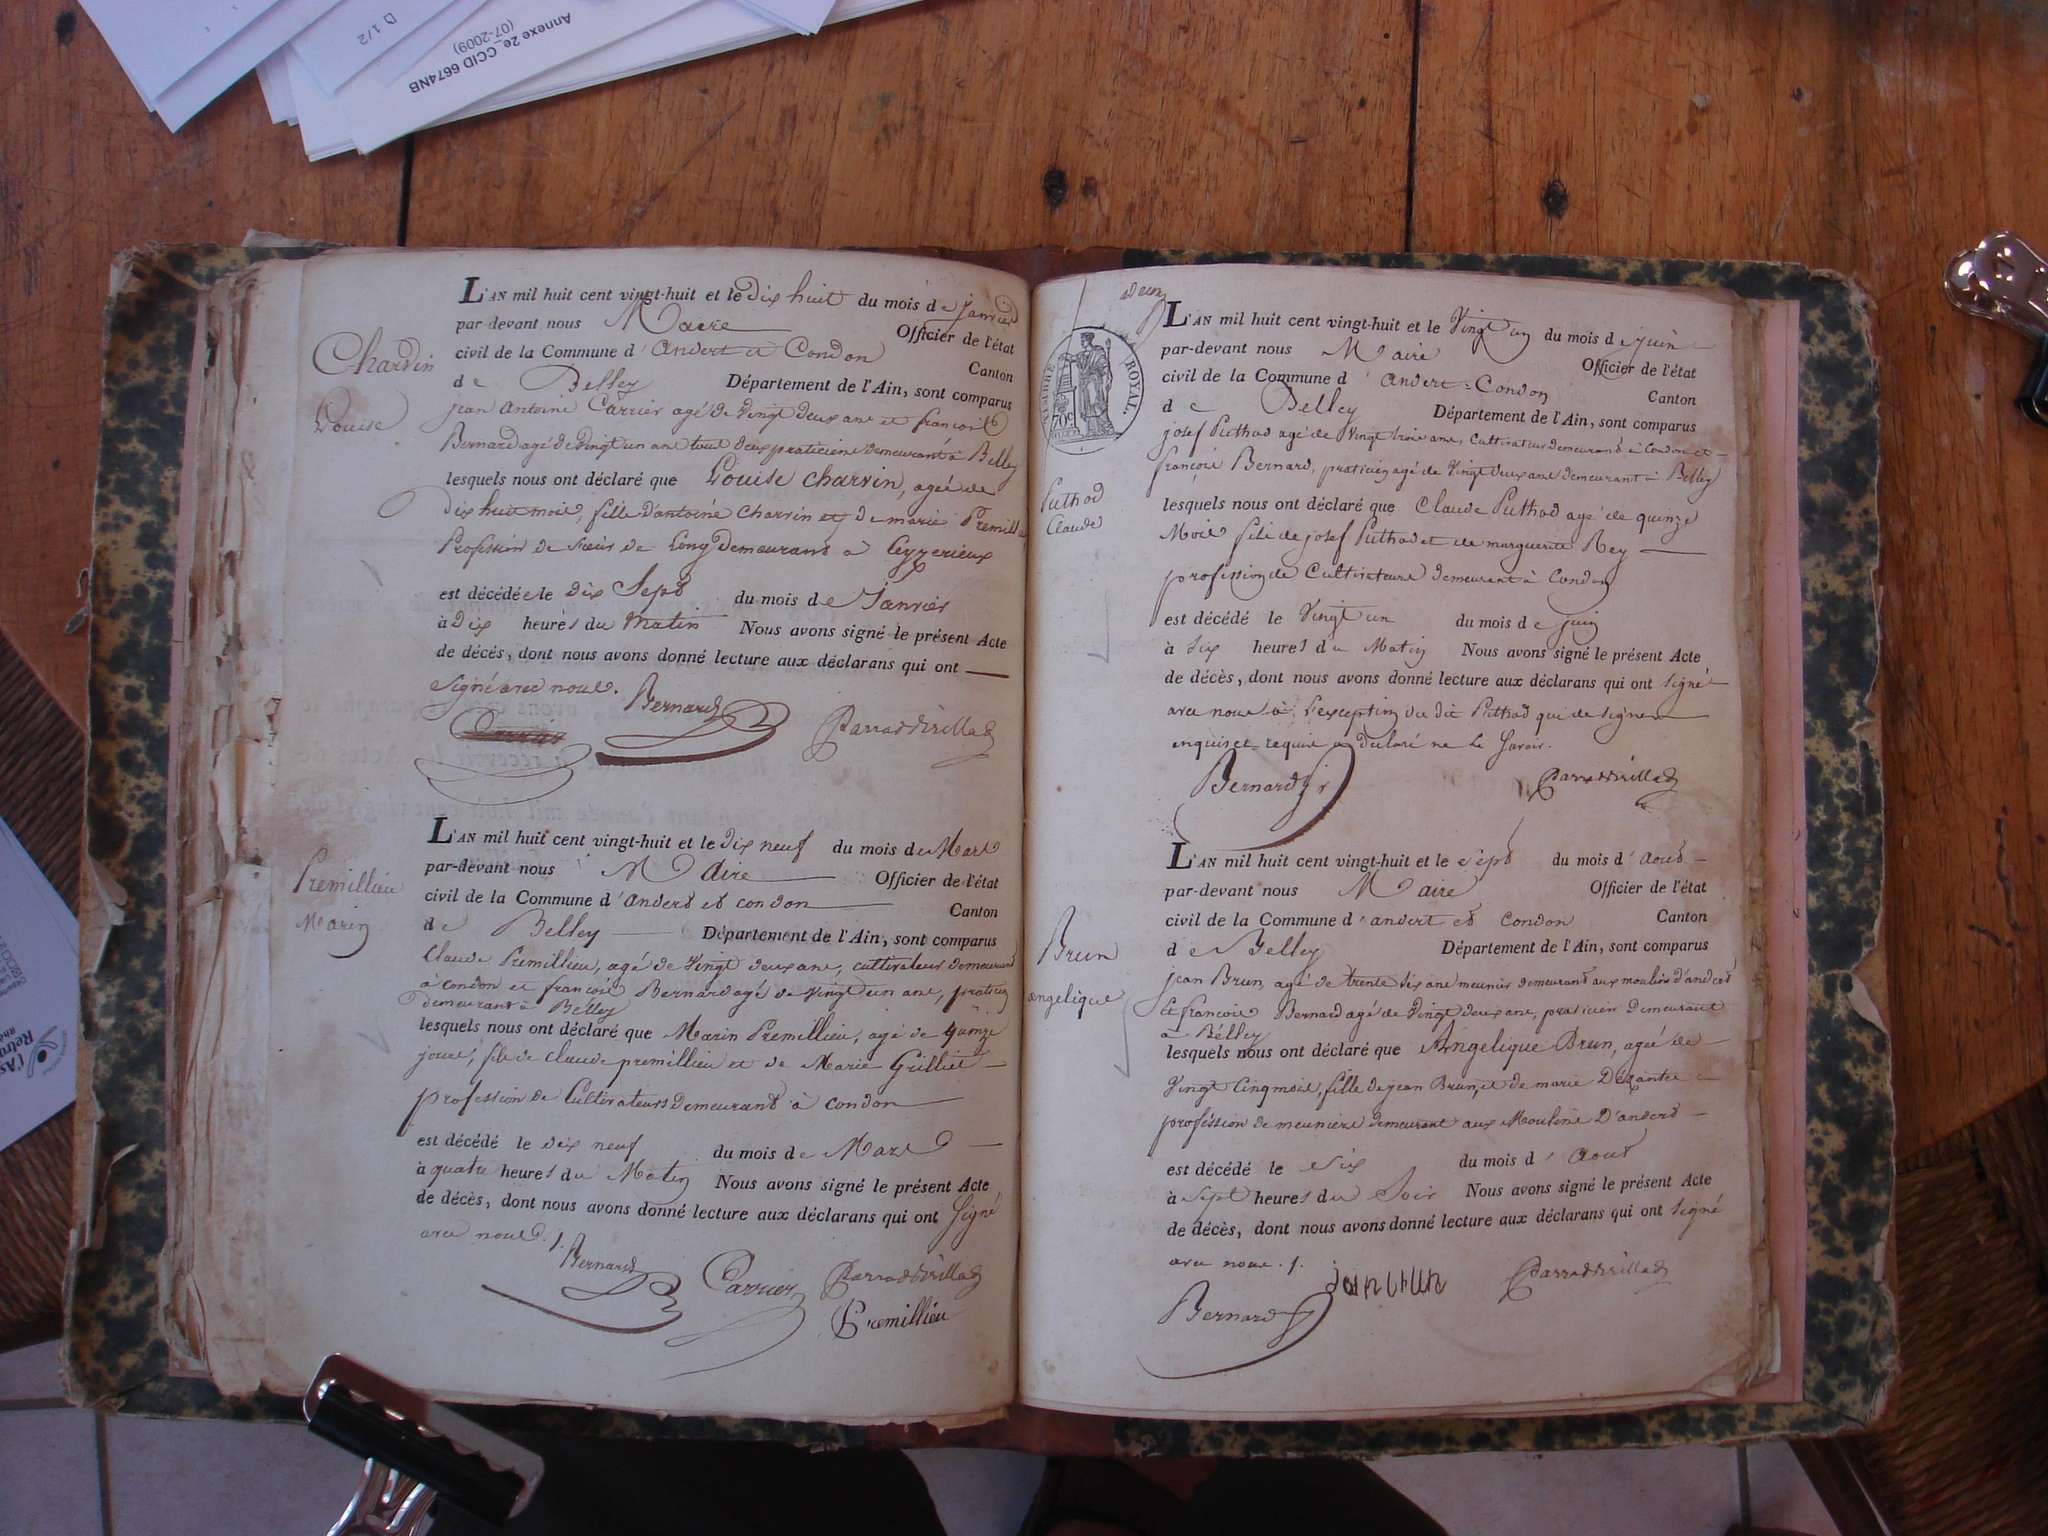 Annexe 2e_CCID 6674NB
(07-2009)
D 1/2
L'AN mil huit cent vingt-huit et le dix huit du mois de janvier
par-devant nous Maire Officier de l'état
civil de la Commune d'andert et Condon Canton
de Belley Département de l'Ain, sont comparus
jean antoine Carrier agé de vingt deux ans et françois
Bernard agé de vingt un ans tous deux praticiens demeurant à Belley
lesquels nous ont déclaré que Louise Charvin, agée de
dix huit mois, fille d'antoine Charvin et de marie Premillieu
Profession de demeurant a Ceyzerieux
est décédée le dix Sept du mois de Janvier
à Dix heures du matin Nous avons signé le présent Acte
de décés, dont nous avons donné lecture aux déclarans qui ont
signé avec nous.
Charvin
Louise
Carrier Bernard Parrad Brillad
L'AN mil huit cent vingt-huit et le dix neuf du mois de Mars
par-devant nous Maire Officier de l'état
civil de la Commune d'andert et condon Canton
de Belley Département de l'Ain, sont comparus
Claude Premillieu, agé de vingt deux ans, cultivateur demeurant
à condon et françois Bernard agé de vingt un ans, praticien
demeurant à Belley
lesquels nous ont déclaré que Marin Premillieu, agé de quinze
jours, fils de claude premillieu et de Marie Grilliet
profession de Cultivateurs demeurant à condon
est décédé le dix neuf du mois de Mars
à quatre heures du Matin Nous avons signé le présent Acte
de décès, dont nous avons donné lecture aux déclarans qui ont signé
avec nous.
Premillieu
Marin
Bernard Carrier Parrad Brillad
Premillieu
TIMBRE ROYAL.
70c
L'AN mil huit cent vingt-huit et le Vingt un du mois de juin
par-devant nous Maire Officier de l'état
civil de la Commune d'andert-Condon Canton
de Belley Département de l'Ain, sont comparus
josef Puthod agé de Vingt trois ans, Cultivateur demeurant à Condon et
françois Bernard, praticien agé de Vingt deux ans demeurant à Belley
lesquels nous ont déclaré que Claude Puthod agé de quinze
Mois fils de josef Puthod et de marguerite Rey
profession de Cultivateurs demeurant à Condon
est décédé le Vingt un du mois de juin
à six heures du Matin Nous avons signé le présent Acte
de décès, dont nous avons donné lecture aux déclarans qui ont signé
avec nous à l'exception du dit Puthod qui de signer
enquis et requis a déclaré ne le savoir.
Puthod
Claude
Bernard Parrad Brillad
L'AN mil huit cent vingt-huit et le sept du mois d'aout
par-devant nous Maire Officier de l'état
civil de la Commune d'andert et Condon Canton
de Belley Département de l'Ain, sont comparus
jean Brun, agé de trente six ans meunier demeurant aux moulins d'andert
Et francois Bernard agé de Vingt deux ans, praticien demeurant
à Belley
lesquels nous ont déclaré que Angelique Brun, agée de
Vingt Cinq mois, fille de jean Brun, et de marie Dezantre
profession de meuniers demeurant aux Moulins D'andert
est décédé le six du mois d'aout
à sept heures du Soir Nous avons signé le présent Acte
de décès, dont nous avons donné lecture aux déclarans qui ont signé
avec nous.
Brun
angelique
Bernard jean brun Parrad Brillad